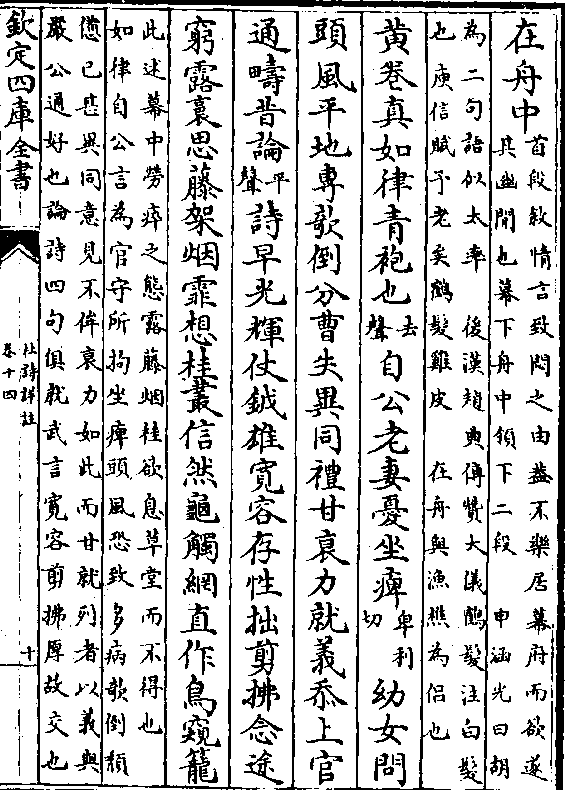 在舟中首段敘情言致悶之由葢不樂居幕府而欲遂
其幽閒也幕下舟中領下二段 申涵光曰胡
為二句語似太率 後漢趙典傳贊大儀鶴髪注白髪
也 庾信賦予老矣鶴髮雞皮 在舟與漁樵為侶也
黄卷真如律青袍也去聲自公老妻憂坐痺卑利切幼女問
頭風平地專欹倒分曹失異同禮甘衰力就義忝上官
通疇昔論平聲詩早光輝仗鉞雄寛容存性拙剪拂念途
窮露裛思藤架烟霏想桂叢信然龜觸網直作鳥窺籠
此述幕中勞瘁之態露藤烟桂欲息草堂而不得也
如律自公言為官守所拘坐痺頭風恐致多病欹倒頽
憊已甚異同意見不侔衰力如此而甘就列者以義與
嚴公通好也論詩四句俱就武言寛容剪拂厚故交也
欽定四庫全書
杜詩詳註
卷十四
十